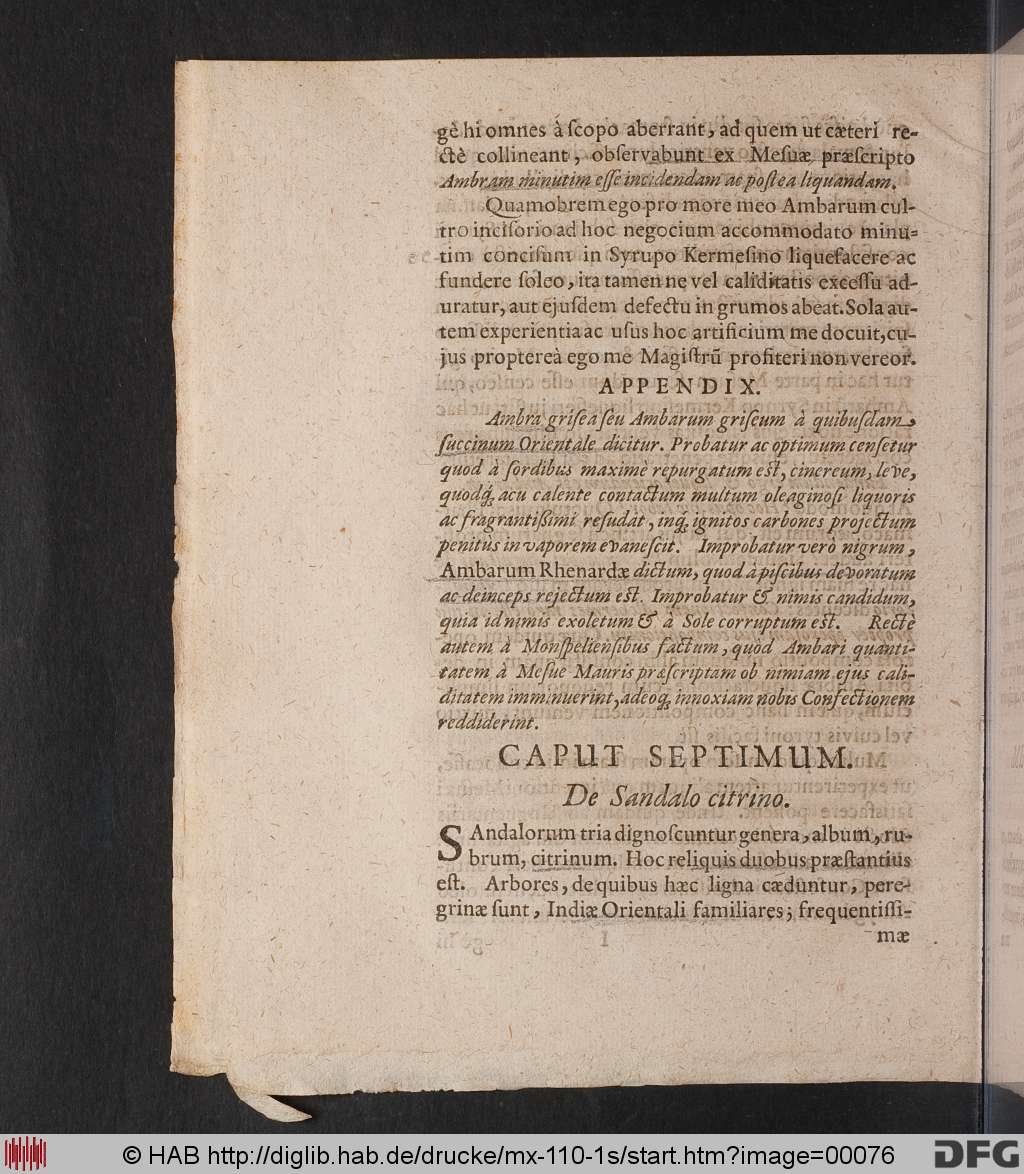 gè hi omnes à ſcopo aberrant, ad quem ut cæteri re-
ctè collineant, obſervabunt ex Meſuæ præſcripto
Ambram minutim eſſe incidendam ac poſtea liquandam.
Quamobrem ego pro more meo Ambarum cul-
tro inciſorio ad hoc negocium accommodato minu-
tim conciſum in Syrupo Kermeſino liquefacere ac
fundere ſoleo, ita tamen ne vel caliditatis exceſſu ad-
uratur, aut ejuſdem defectu in grumos abeat. Sola au-
tem experientia ac uſus hoc artificium me docuit, cu-
jus propterea ego me Magiſtrũ profiteri non vereor.
APPENDIX.
Ambra griſea ſeu Ambarum griſeum à quibuſdam
ſuccinum Orientale dicitur. Probatur ac optimum cenſetur
quod à ſordibus maximè repurgatum eſt, cinereum, leve,
quodq́; acu calente contactum multum oleaginoſi liquoris
ac fragrantißimi reſudat, inq́; ignitos carbones projectum
penitùs in vaporem evaneſcit. Improbatur verò nigrum,
Ambarum Rhenardæ dictum, quod à piſcibus devoratum
ac deinceps rejectum eſt. Improbatur & nimis candidum,
quia id nimis exoletum & à Sole corruptum eſt. Rectè
autem à Monſpelienſibus factum, quòd Ambari quanti-
tatem à Meſue Mauris præſcriptam ob nimiam ejus cali-
ditatem imminuerint, adeoq́; innoxiam nobis Confectionem
reddiderint.
CAPUT SEPTIMUM.
De Sandalo citrino.
SAndalorum tria dignoſcuntur genera, album, ru-
brum, citrinum. Hoc reliquis duobus præſtantius
eſt. Arbores, de quibus hæc ligna cæduntur, pere-
grinæ ſunt, Indiæ Orientali familiares; frequentiſſi-
mæ
© HAB http://diglib.hab.de/drucke/mx-110-1s/start.htm?image=00076
DFG